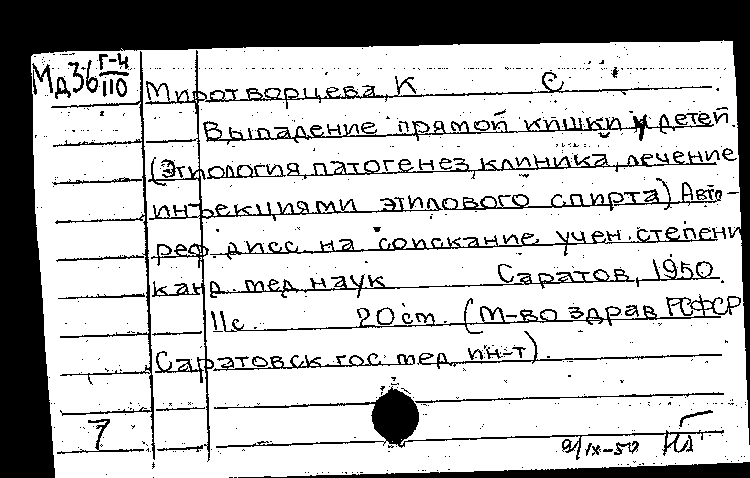 Мд36 Г-4/110
Миротворцева, К С.
Выпадение прямой кишки у детей.
(Этиология, патогенез, клиника, лечение
инъекциями этилового спирта) Авто-
реф дисс. на соискание учен. степени
канд. мед. наук Саратов, 1950.
11с 20 см. (М-во здрав РСФСР
Саратовск гос мед ин-т).
7
9/IX-50